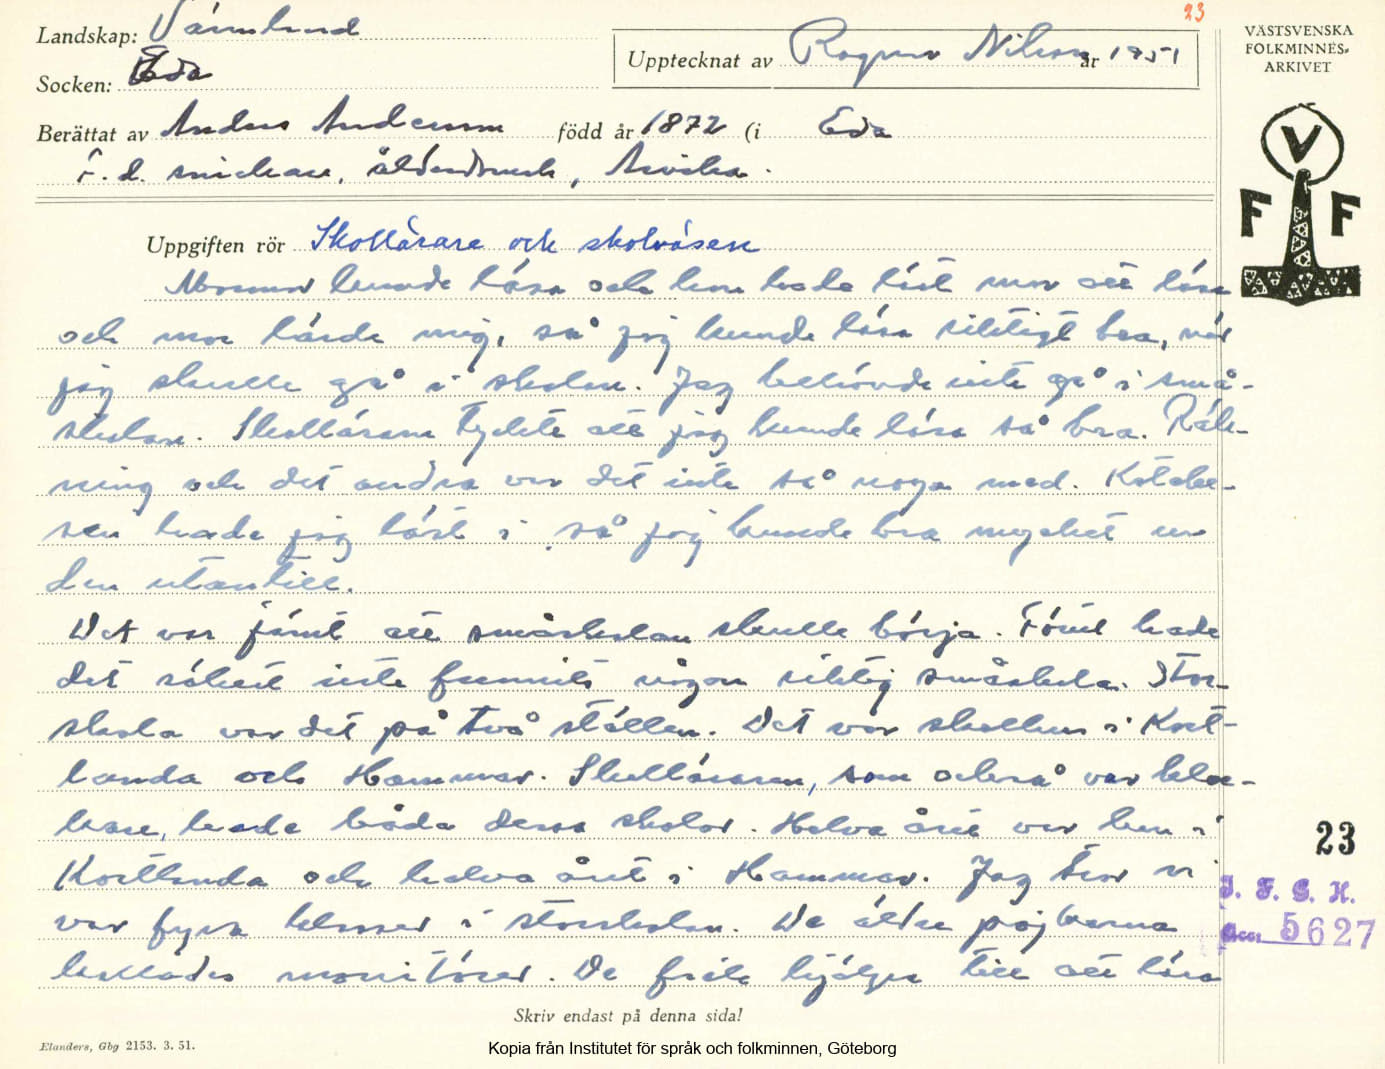 23
Landskap: Värmland
Upptecknat av Ragnar Nilsson år 1951
VÄSTSVENSKA
FOLKMINNES-
ARKIVET
Socken: Eda
Berättat av Anders Andersson född år 1872 (i Eda
F. d. snickare, ålderdomsh, Arvika.
V
F F
Uppgiften rör Skollärare och skolväsen
Mormor kunde läsa och hon hade lärt mor att läsa
och mor lärde mig, så jag kunde läsa riktigt bra, när
jag skulle gå i skolan. Jag behövde inte gå i små-
skolan. Skolläraren tyckte att jag kunde läsa så bra. Räk-
ning och det andra var det inte så noga med. Kateke-
sen hade jag läst i så jag kunde bra mycket ur
den utantill.
Det var jämt att småskolan skulle börja. Förut hade
det säkert inte funnits någon riktig småskola. Stor-
skola var det på två ställen. Det var skolhus i Kort-
landa och Hammar. Skolläraren, som också var kloc-
kare, hade båda dessa skolor. Halva året var han i
Kortlanda och halva året i Hammar. Jag tror vi
var fyra klasser i storskolan. De äldre pojkarna
kallades monitörer. De fick hjälpa till att lära
23
I. F. G. H.
Acc. 5627
Skriv endast på denna sida!
Elanders, Gbg 2153. 3. 51.
Kopia från Institutet för språk och folkminnen, Göteborg